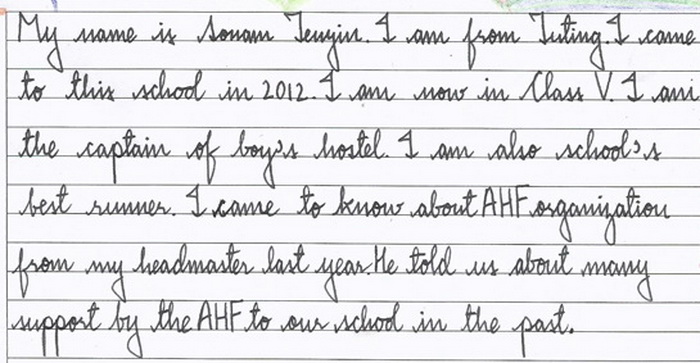 My name is Sonam Tenzin. I am from Tuting. I came
to this school in 2012. I am now in Class V. I am
the captain of boy's hostel. I am also school's
best runner. I came to know about AHF organization
from my headmaster last year. He told us about many
support by the AHF to our school in the past.